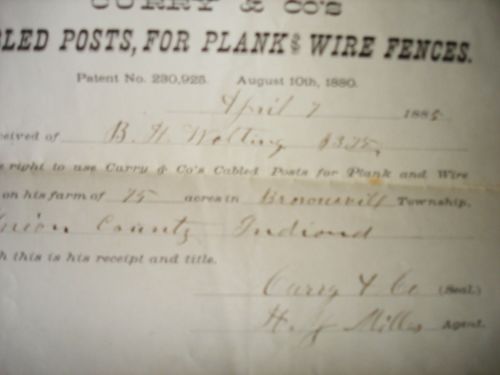 CURRY & CO'S
BLED POSTS, FOR PLANK & WIRE FENCES.
Patent No. 230,925. August 10th, 1880.
April 7 1885.
ceived of B. H. Wolting $3.75,
e right to use Curry & Co's Cabled Posts for Plank and Wire
on his farm of 75 acres in Brownsvill Township,
nion County Indiana
h this is his receipt and title.
Curry & Co (Seal.)
H. J. Miller Agent.